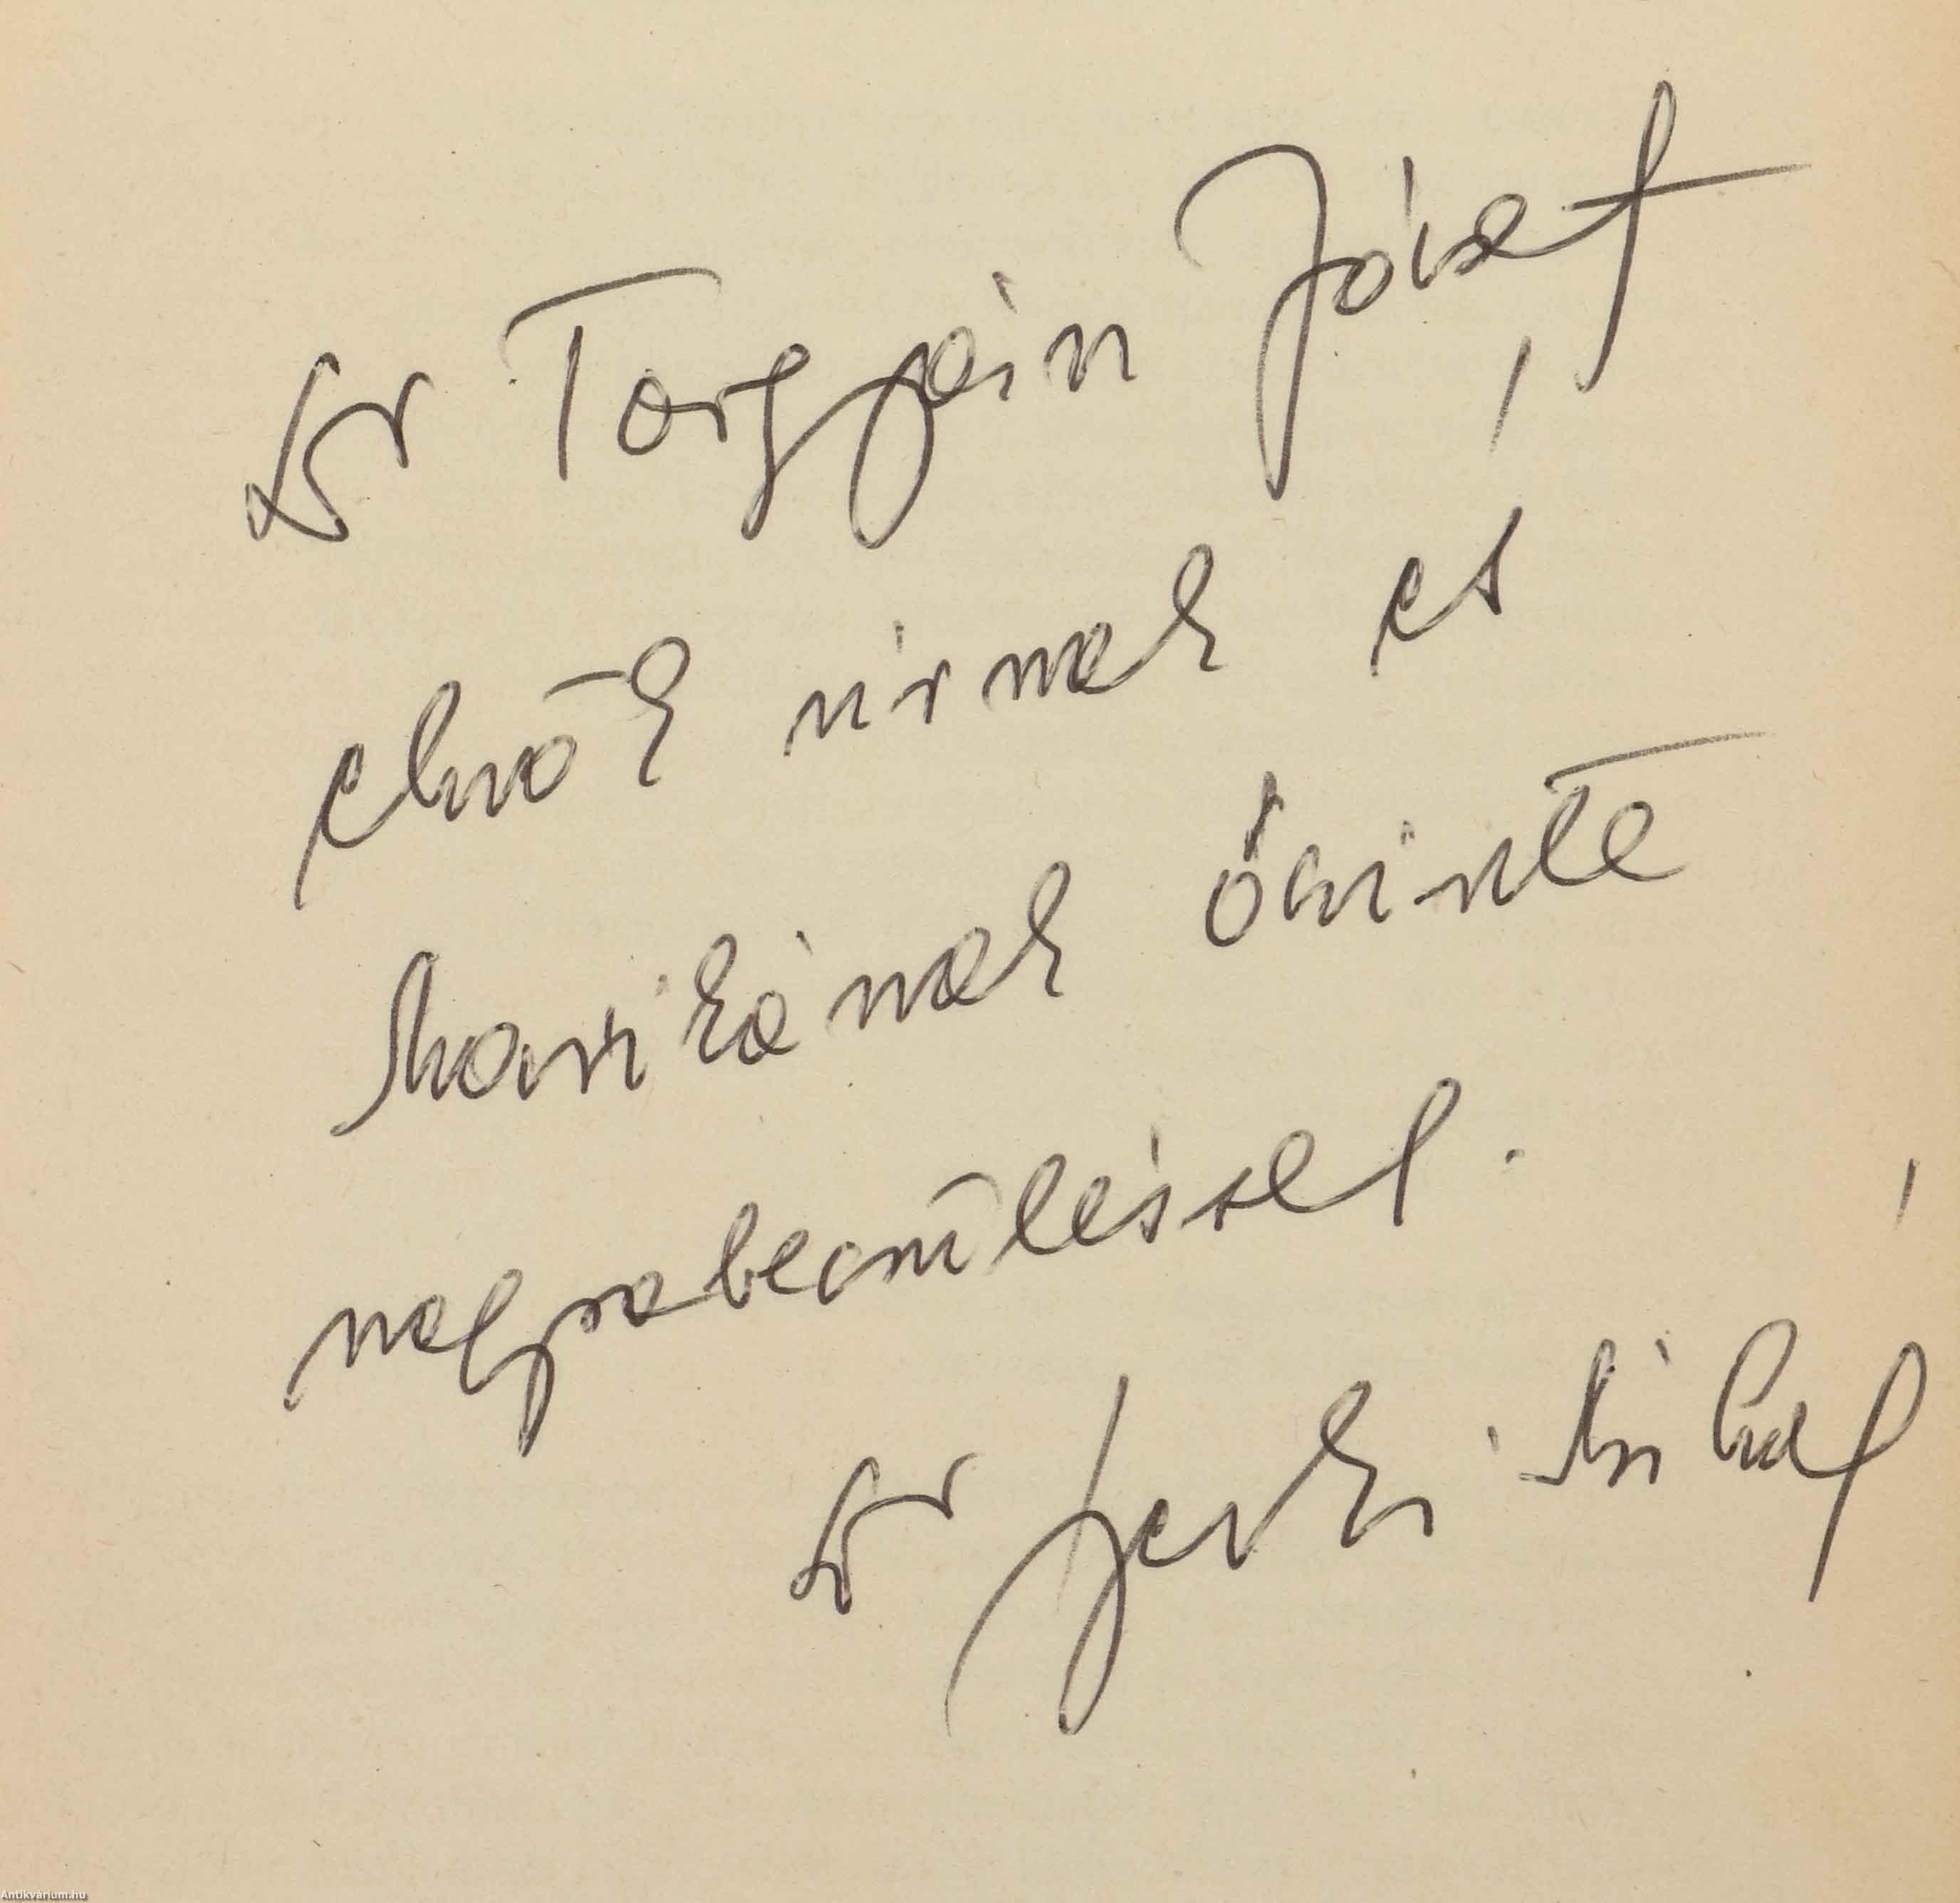 Dr Torgyán József
elnök úrnak és
Marikának őszinte
nagyrabecsüléssel.
Dr Jerki Mihály
Antikvárium.hu